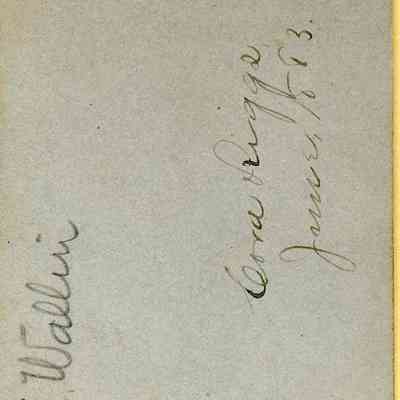 Wallin
Cora Riggs
June, 1883.